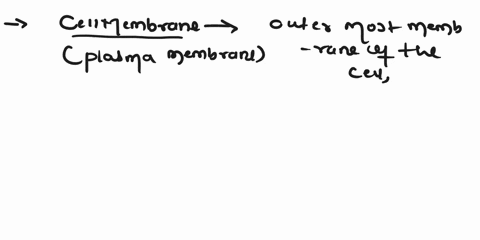 → Cell Membrane → outer most memb
(plasma membrane) -rane of the
cell,